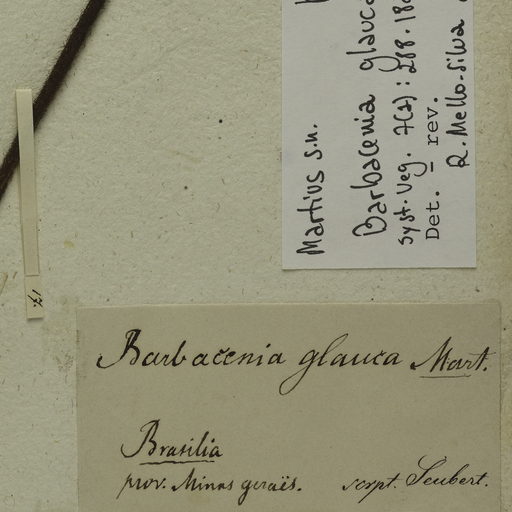 Martius s.n.
Barbacenia glauca
Syst. Veg. 7(2): 288. 18
Det. – rev.
R. Mello-Silva
Barbacenia glauca Mart.
Brasilia
prov. Minas geraës. scrpt. Seubert.